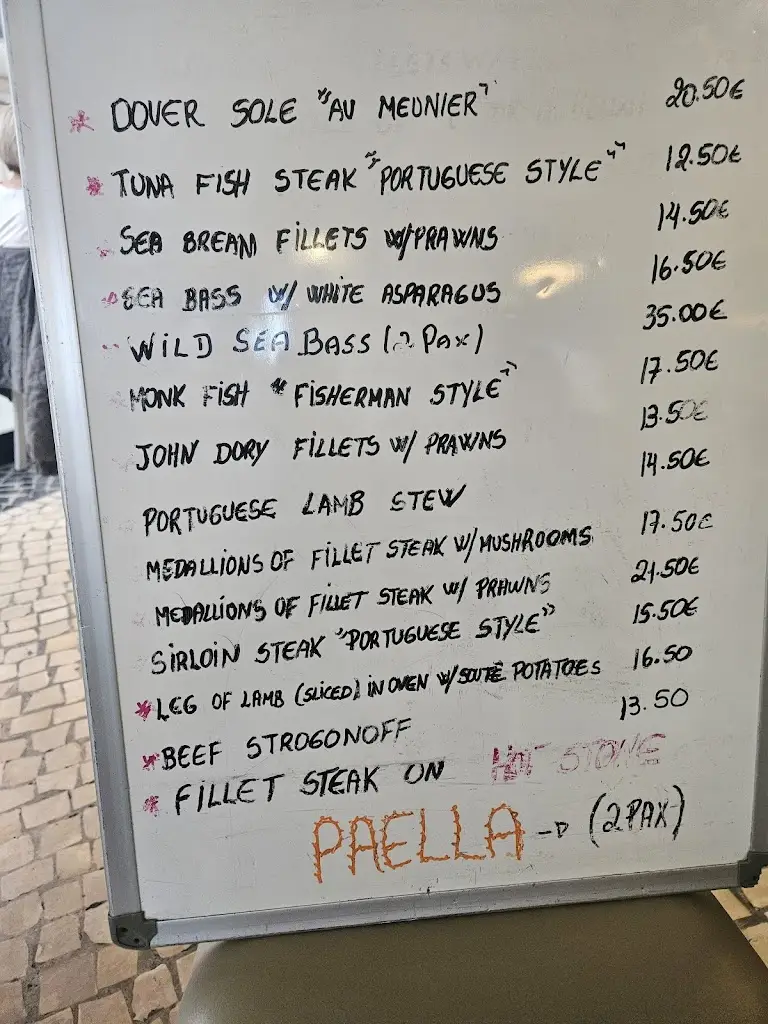 * DOVER SOLE "AU MEUNIER" 20.50€
* TUNA FISH STEAK "PORTUGUESE STYLE" 12.50€
SEA BREAM FILLETS W/PRAWNS 14.50€
SEA BASS W/ WHITE ASPARAGUS 16.50€
WILD SEA BASS (2 PAX) 35.00€
MONK FISH "FISHERMAN STYLE" 17.50€
JOHN DORY FILLETS W/ PRAWNS 13.50€
PORTUGUESE LAMB STEW 14.50€
MEDALLIONS OF FILLET STEAK W/MUSHROOMS 17.50€
MEDALLIONS OF FILLET STEAK W/ PRAWNS 21.50€
SIRLOIN STEAK "PORTUGUESE STYLE" 15.50€
* LEG OF LAMB (SLICED) IN OVEN W/SOUTÉ POTATOES 16.50
* BEEF STROGONOFF 13.50
* FILLET STEAK ON HOT STONE
PAELLA → (2 PAX)